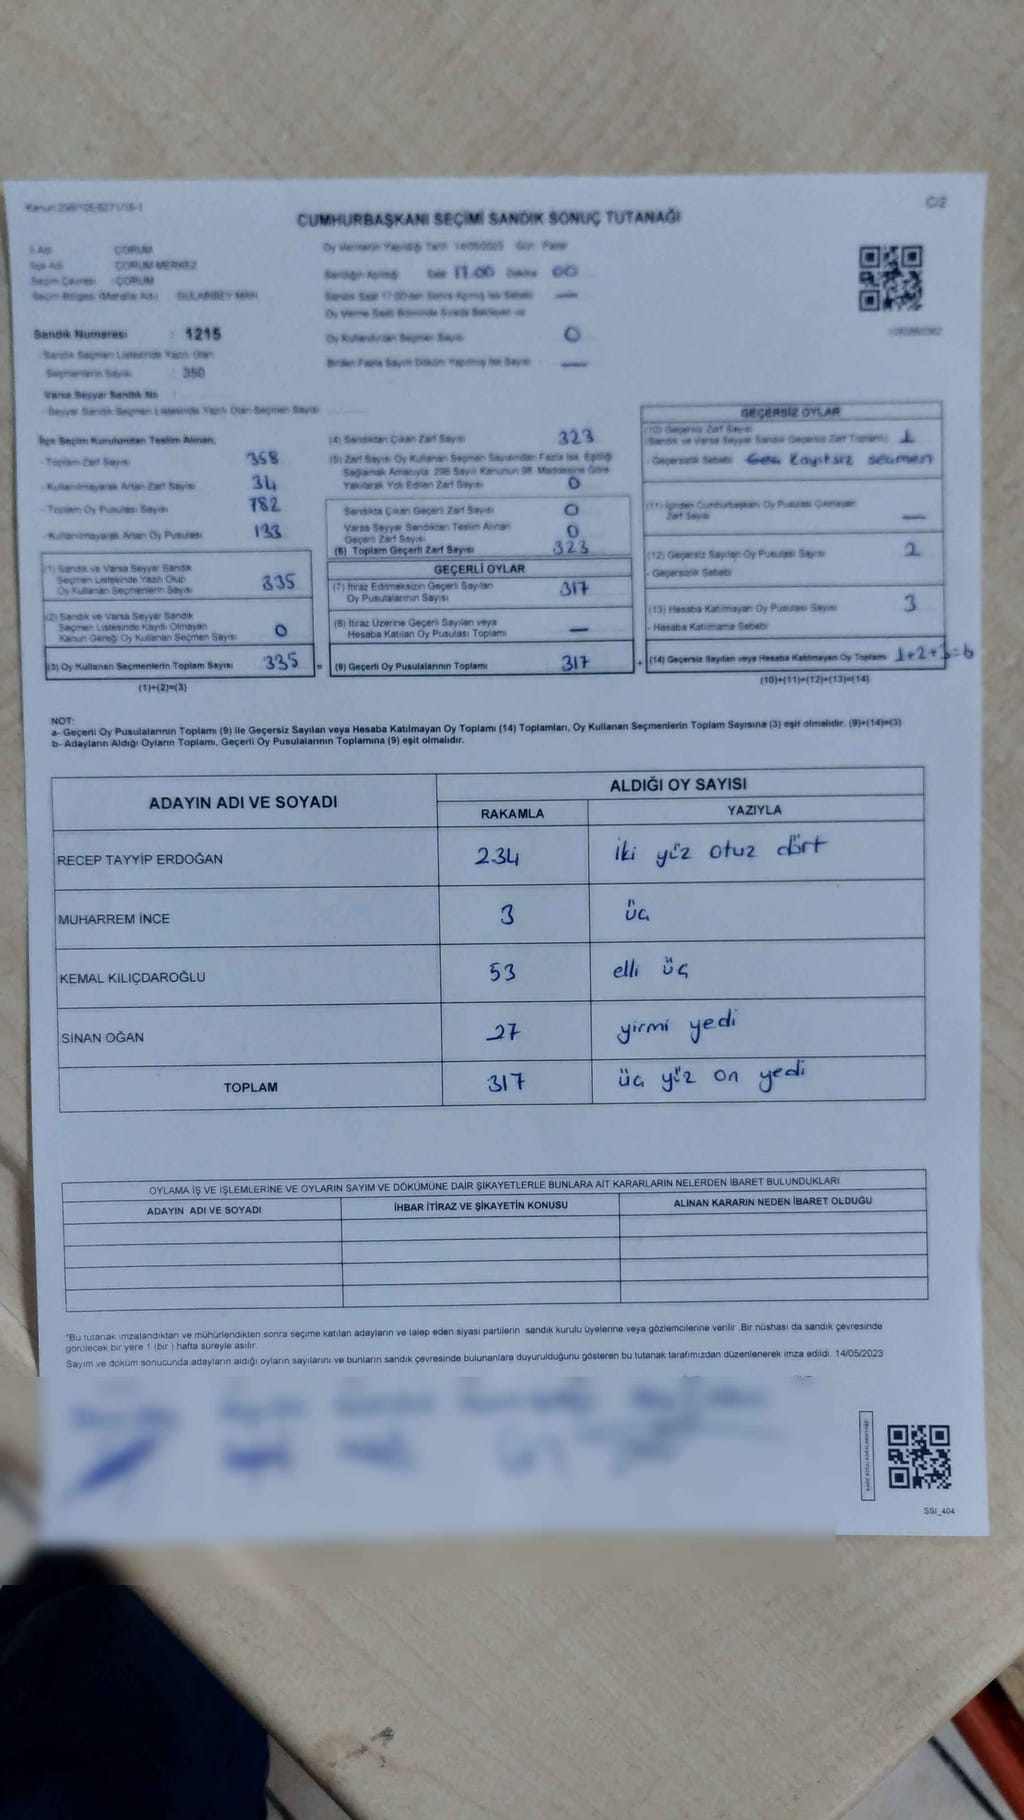 Kanun:298/105/6271/18-1
C/2
CUMHURBAŞKANI SEÇİMİ SANDIK SONUÇ TUTANAĞI
İl Adı : ÇORUM
İlçe Adı : ÇORUM MERKEZ
Seçim Çevresi : ÇORUM
Seçim Bölgesi (Mahalle Adı) : GÜLABİBEY MAH
Sandık Numarası : 1215
- Sandık Seçmen Listesinde Yazılı Olan
Seçmenlerin Sayısı : 350
Varsa Seyyar Sandık No
- Seyyar Sandık Seçmen Listesinde Yazılı Olan Seçmen Sayısı
Oy Vermenin Yapıldığı Tarih 14/05/2023 Gün Pazar
Sandığın Açıldığı Saat 17.00 Dakika 00
Sandık Saat 17:00'den Sonra Açılmış İse Sebebi —
Oy Verme Saati Bitiminde Sırada Bekleyen ve
Oy Kullandırılan Seçmen Sayısı 0
Birden Fazla Sayım Döküm Yapılmış İse Sayısı —
İlçe Seçim Kurulundan Teslim Alınan;
- Toplam Zarf Sayısı 358
- Kullanılmayarak Artan Zarf Sayısı 34
- Toplam Oy Pusulası Sayısı 782
- Kullanılmayarak Artan Oy Pusulası 133
(1) Sandık ve Varsa Seyyar Sandık
Seçmen Listesinde Yazılı Olup
Oy Kullanan Seçmenlerin Sayısı 335
(2) Sandık ve Varsa Seyyar Sandık
Seçmen Listesinde Kayıtlı Olmayan
Kanun Gereği Oy Kullanan Seçmen Sayısı 0
(3) Oy Kullanan Seçmenlerin Toplam Sayısı 335 =
(1)+(2)=(3)
(4) Sandıktan Çıkan Zarf Sayısı 323
(5) Zarf Sayısı Oy Kullanan Seçmen Sayısından Fazla İse, Eşitliği
Sağlamak Amacıyla 298 Sayılı Kanunun 98. Maddesine Göre
Yakılarak Yok Edilen Zarf Sayısı 0
Sandıkta Çıkan Geçerli Zarf Sayısı 0
Varsa Seyyar Sandıktan Teslim Alınan
Geçerli Zarf Sayısı 0
(6) Toplam Geçerli Zarf Sayısı 323
GEÇERLİ OYLAR
(7) İtiraz Edilmeksizin Geçerli Sayılan
Oy Pusulalarının Sayısı 317
(8) İtiraz Üzerine Geçerli Sayılan veya
Hesaba Katılan Oy Pusulası Toplamı —
(9) Geçerli Oy Pusulalarının Toplamı 317 +
GEÇERSİZ OYLAR
(10) Geçersiz Zarf Sayısı
(Sandık ve Varsa Seyyar Sandık Geçersiz Zarf Toplamı) 1
- Geçersizlik Sebebi kayıtsız seçmen
(11) İçinden Cumhurbaşkanı Oy Pusulası Çıkmayan
Zarf Sayısı —
(12) Geçersiz Sayılan Oy Pusulası Sayısı 2
- Geçersizlik Sebebi
(13) Hesaba Katılmayan Oy Pusulası Sayısı 3
- Hesaba Katılmama Sebebi
(14) Geçersiz Sayılan veya Hesaba Katılmayan Oy Toplamı 1+2+3=6
(10)+(11)+(12)+(13)=(14)
NOT:
a- Geçerli Oy Pusulalarının Toplamı (9) ile Geçersiz Sayılan veya Hesaba Katılmayan Oy Toplamı (14) Toplamları, Oy Kullanan Seçmenlerin Toplam Sayısına (3) eşit olmalıdır. (9)+(14)=(3)
b- Adayların Aldığı Oyların Toplamı, Geçerli Oy Pusulalarının Toplamına (9) eşit olmalıdır.
ADAYIN ADI VE SOYADI
ALDIĞI OY SAYISI
RAKAMLA YAZIYLA
RECEP TAYYİP ERDOĞAN 234 iki yüz otuz dört
MUHARREM İNCE 3 üç
KEMAL KILIÇDAROĞLU 53 elli üç
SİNAN OĞAN 27 yirmi yedi
TOPLAM 317 üç yüz on yedi
OYLAMA İŞ VE İŞLEMLERİNE VE OYLARIN SAYIM VE DÖKÜMÜNE DAİR ŞİKAYETLERLE BUNLARA AİT KARARLARIN NELERDEN İBARET BULUNDUKLARI
ADAYIN ADI VE SOYADI İHBAR İTİRAZ VE ŞİKAYETİN KONUSU ALINAN KARARIN NEDEN İBARET OLDUĞU
*Bu tutanak imzalandıktan ve mühürlendikten sonra seçime katılan adayların ve talep eden siyasi partilerin sandık kurulu üyelerine veya gözlemcilerine verilir. Bir nüshası da sandık çevresinde
görülecek bir yere 1 (bir ) hafta süreyle asılır.
Sayım ve döküm sonucunda adayların aldığı oyların sayılarını ve bunların sandık çevresinde bulunanlara duyurulduğunu gösteren bu tutanak tarafımızdan düzenlenerek imza edildi. 14/05/2023
SSI_404